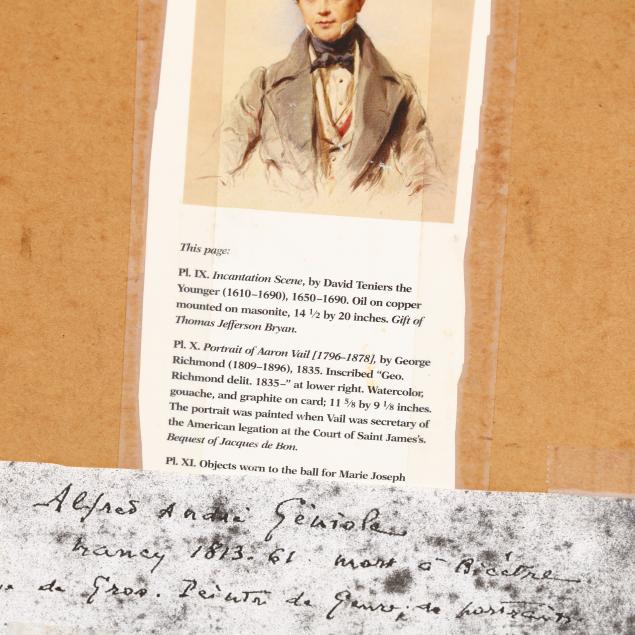 This page:
Pl. IX. Incantation Scene, by David Teniers the
Younger (1610–1690), 1650–1690. Oil on copper
mounted on masonite, 14 ½ by 20 inches. Gift of
Thomas Jefferson Bryan.
Pl. X. Portrait of Aaron Vail [1796–1878], by George
Richmond (1809–1896), 1835. Inscribed “Geo.
Richmond delit. 1835–” at lower right. Watercolor,
gouache, and graphite on card; 11 ⅝ by 9 ⅛ inches.
The portrait was painted when Vail was secretary of
the American legation at the Court of Saint James's.
Bequest of Jacques de Bon.
Pl. XI. Objects worn to the ball for Marie Joseph
Alfred André Géniole
nancy 1813-61 mort à Bicêtre
de Gros. Peintre de Genre, de portraits